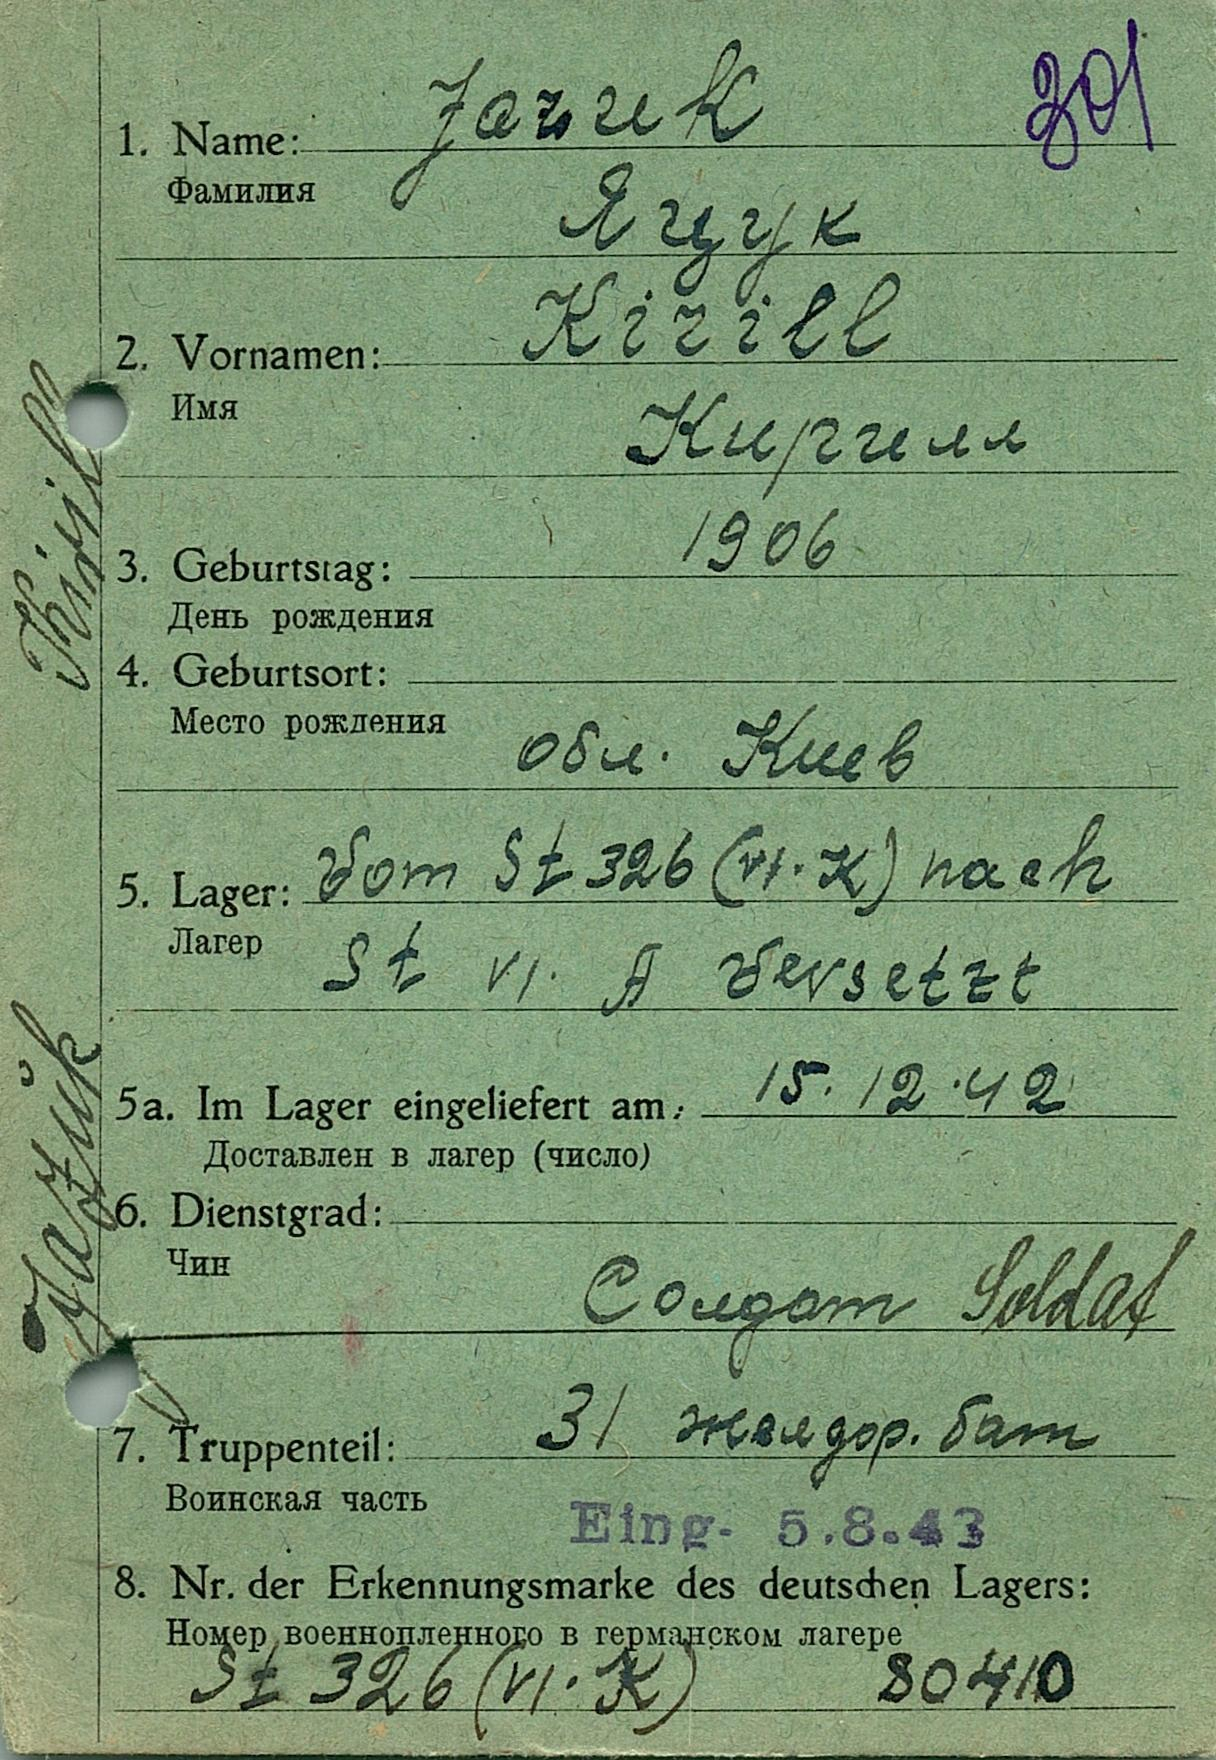 301
1. Name: Jazuk
Фамилия
Яцук
2. Vornamen: Kirill
Имя
Кирилл
1906
3. Geburtstag:
День рождения
4. Geburtsort:
Место рождения
обл. Киев
5. Lager: Vom St 326 (VI.K) nach
Лагер
St VI. A versetzt
5a. Im Lager eingeliefert am: 15.12.42
Доставлен в лагер (число)
6. Dienstgrad:
Чин
Солдат Soldat
7. Truppenteil: 31 желдор. бат
Воинская часть
Eing- 5.8.43
8. Nr. der Erkennungsmarke des deutschen Lagers:
Номер военнопленного в германском лагере
St 326 (VI.K) 80410
Jazuk Kirill